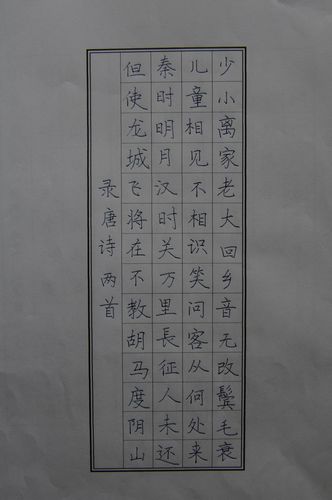 少小离家老大回乡音无改鬓毛衰
儿童相见不相识笑问客从何处来
秦时明月汉时关万里長征人未还
但使龙城飞将在不教胡马度阴山
录唐诗两首